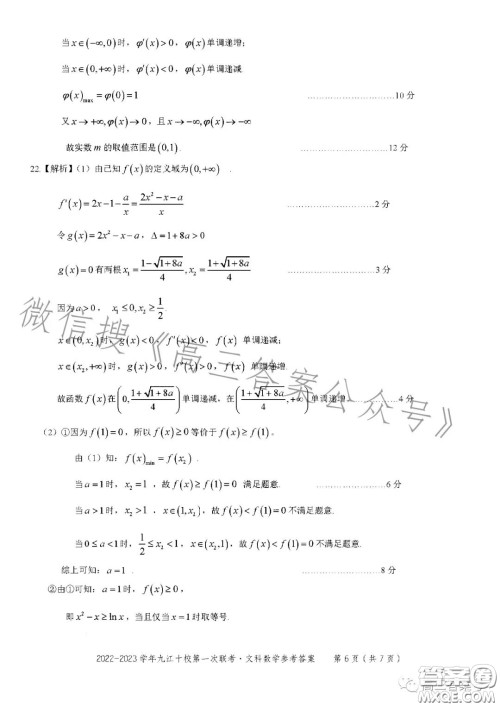 当 x∈(-∞,0) 时，φ'(x)>0，φ(x) 单调递增；
当 x∈(0,+∞) 时，φ'(x)<0，φ(x) 单调递减
φ(x)max=φ(0)=1 ……………………10 分
又 x→+∞,φ(x)→0，且 x→-∞,φ(x)→-∞
故实数 m 的取值范围是(0,1). ……………………12 分
22.【解析】(1) 由已知 f(x) 的定义域为(0,+∞) .
f'(x)=2x-1-a/x=(2x²-x-a)/x ……………………2 分
令 g(x)=2x²-x-a，Δ=1+8a>0
g(x)=0 有两根 x₁=(1-√(1+8a))/4, x₂=(1+√(1+8a))/4 ……………………3 分
因为 a>0， x₁≤0,x₂≥1/2
x∈(0,x₂) 时，g(x)<0，f'(x)<0，f(x) 单调递减；
x∈(x₂,+∞) 时，g(x)>0，f'(x)>0，f(x) 单调递增.
故函数 f(x) 在(0,(1+√(1+8a))/4)单调递减，在((1+√(1+8a))/4,+∞)单调递增. ………4 分
(2) ①因为 f(1)=0，所以 f(x)≥0 等价于 f(x)≥f(1)，
由（1）知：f(x)min=f(x₂)
当 a=1 时，x₂=1 ，故 f(x)≥f(1)=0 满足题意. ……………………6 分
当 a>1 时，x₂>1， x∈(1,x₂)，f(x)<f(1)=0 不满足题意.
当 0≤a<1 时，1/2≤x₂<1，x∈(x₂,1)，f(x)<f(1)=0 不满足题意.
综上可知：a=1 . ……………………8 分
②由①可知：a=1 时，f(x)≥0，
即 x²-x≥lnx，当且仅当 x=1 时取等号.
2022-2023 学年九江十校第一次联考·文科数学参考答案 第 6 页（共 7 页）
微信搜《高三答案公众号》